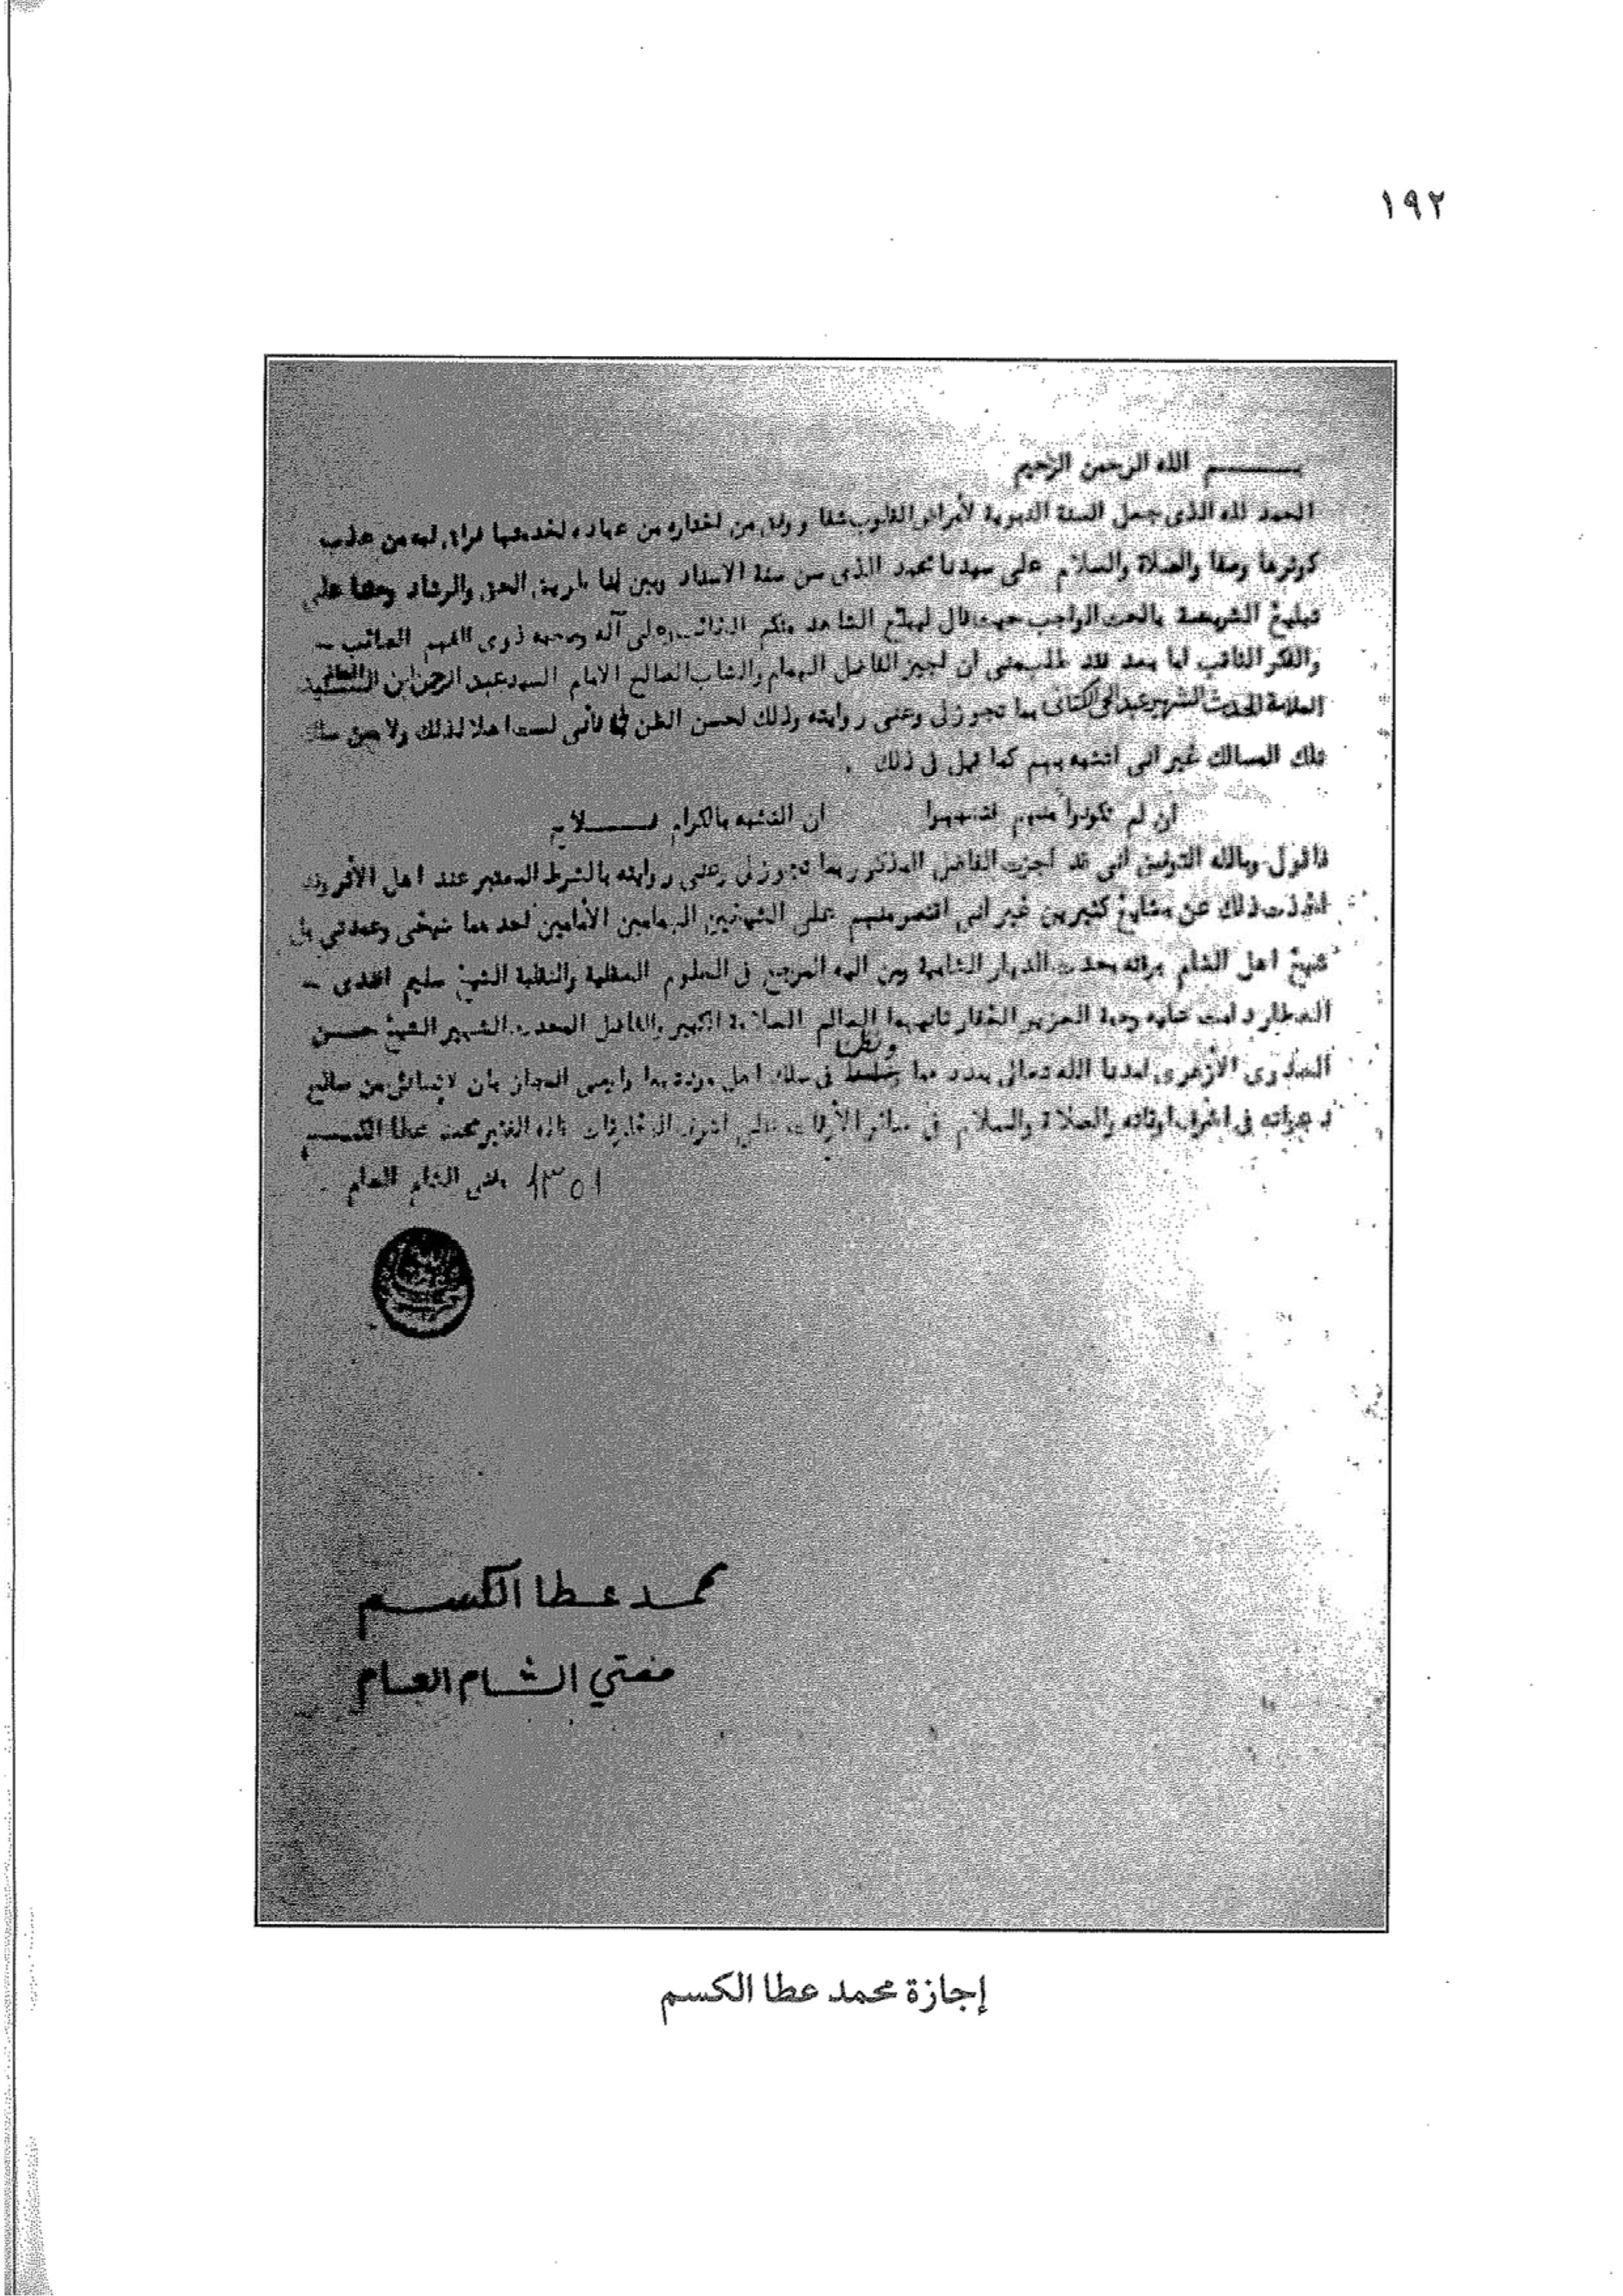 ١٩٢
بسم الله الرحمن الرحيم
الحمد لله الذى جعل السنة النبوية لأمراض القلوب شفا ووفق من اختاره من عباده لخدمتها فراق له من عذب
كوثرها وصفا والصلاة والسلام على سيدنا محمد الذى سن سنة الاسناد وبين لنا طريق الحق والرشاد وحثنا على
تبليغ الشريعة بالحث الواجب حيث قال ليبلغ الشاهد منكم الغائب وعلى آله وصحبه ذوى الفهم الصائب -
والفكر الثاقب اما بعد فقد طلب منى أن اجيز الفاضل الهمام والشاب الصالح الامام السيد عبد الرحمن ابن
العلامة المحدث الشهير عبد الحي الكتاني بما تجوز لى وعنى روايته وذلك لحسن الظن بي فأنى لست اهلا لذلك ولا ممن سلك
تلك المسالك غير انى اتشبه بهم كما قيل فى ذلك .
ان لم تكونوا منهم فتشبهوا ان التشبه بالكرام فلاح
فاقول وبالله التوفيق أنى قد اجزت الفاضل المذكور بما تجوز لى وعنى روايته بالشرط المعتبر عند اهل الأثر وقد
اخذت ذلك عن مشايخ كثيرين غير انى اقتصر منهم على الشيخين الهمامين الأمامين احدهما شيخى وعمدتي بل
شيخ اهل الشام بركة محدث الديار الشامية ومن اليه المرجع فى العلوم العقلية والنقلية الشيخ سليم افندى -
العطار دامت عليه رحمة العزيز الغفار ثانيهما العالم العلامة الكبير والفاضل المحدث الشهير الشيخ حسن
ونظمنا
العدوى الأزهرى امدنا الله تعالى بمددهما فى سلك اهل مودتهما واوصى المجاز بان لا ينسانى من صالح
دعواته فى اشرف اوقاته والصلاة والسلام فى سائر الأوقات على اشرف المخلوقات قاله الفقير محمد عطا الكسم
١٣٥١ مفتى الشام العام
محمد عطا الكسم
مفتي الشام العام
إجازة محمد عطا الكسم